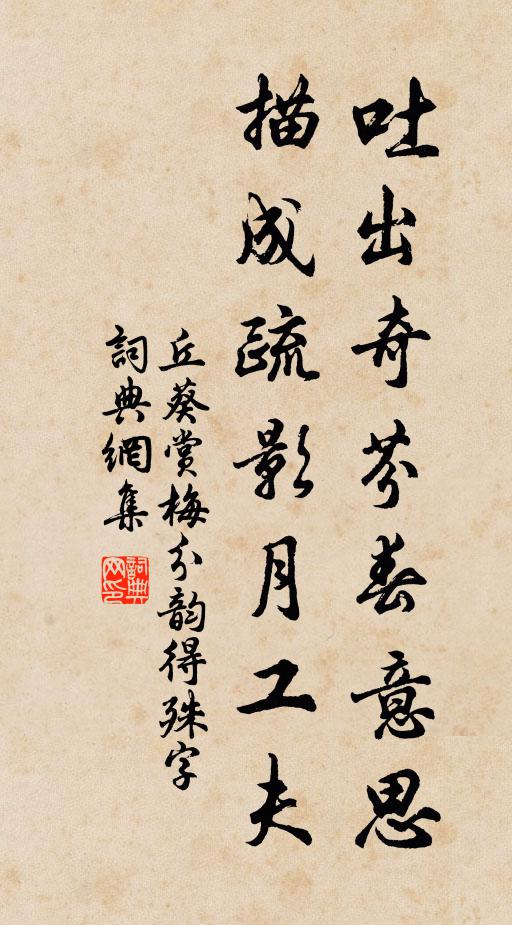 吐出奇芬春意思
描成疏影月工夫
丘葵賞梅分韵得殊字
詞典網集
詞典网印